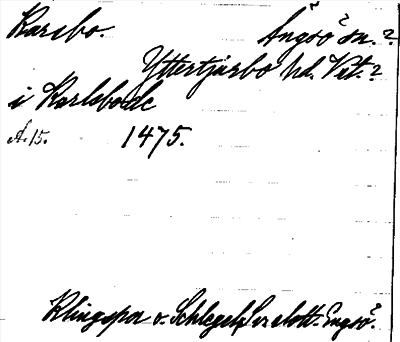 Karsbo. Ängsö? sn.?
Yttertjurbo hd. Vstm.?
i Karlsbode
Ä. 15. 1475.
Klingspor o. Schlegel, Svea slott. Engsö?